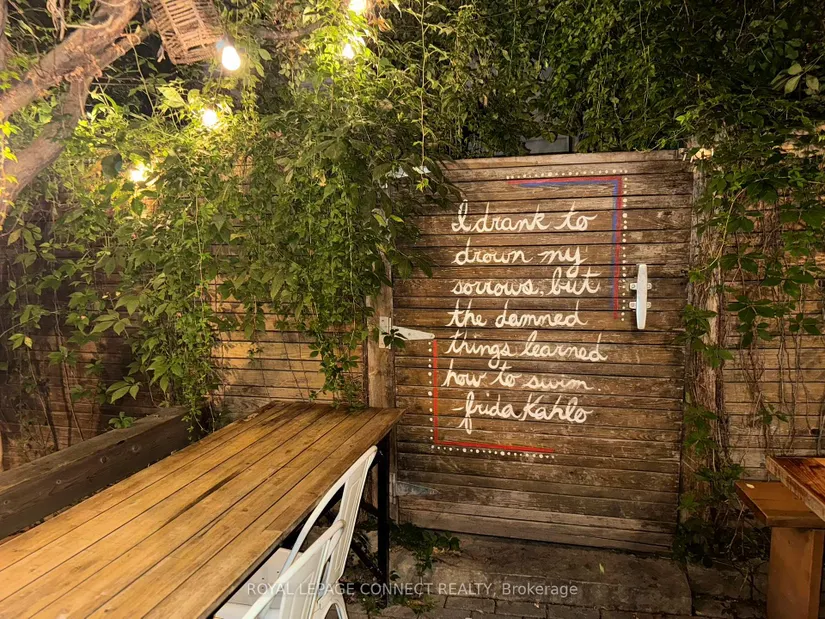 I drank to
drown my
sorrows, but
the damned
things learned
how to swim
-frida Kahlo
ROYAL LEPAGE CONNECT REALTY, Brokerage